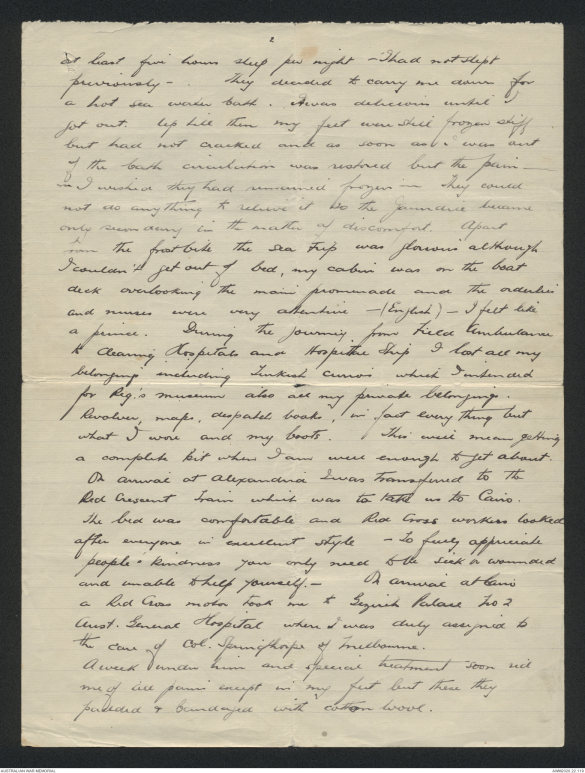 2
at least five hours sleep per night - I had not slept
previously - . They decided to carry me down for
a hot sea water bath. It was delicious until I
got out. Up till then my feet were still frozen stiff
but had not cracked and as soon as I was out
of the bath circulation was restored but the pain -
- I wished they had remained frozen - They could
not do anything to relieve it so the Jaundice became
only secondary in the matter of discomfort. Apart
from the frostbite the sea trip was glorious although
I couldn't get out of bed, my cabin was on the boat
deck overlooking the main promenade and the orderlies
and nurses were very attentive - (English) - I felt like
a prince. During the journey from Field Ambulance
to Clearing Hospitals and Hospital Ship I lost all my
belongings including Turkish curios which I intended
for Reg's museum also all my private belongings.
Revolver, maps, despatch books, in fact every thing but
what I wore and my boots. This will mean getting
a complete kit when I am well enough to get about.
On arrival at Alexandria I was transferred to the
Red Crescent Train which was to take us to Cairo.
The bed was comfortable and Red Cross workers looked
after everyone in excellent style - To fully appreciate
people's kindness you only need to be sick or wounded
and unable to help yourself. - On arrival at Cairo
a Red Cross motor took me to Gezireh Palace No 2
Aust. General Hospital where I was duly assigned to
the care of Col. Springthorpe of Melbourne.
A week under him and special treatment soon rid
me of all pains except in my feet but these they
padded & bandaged with cotton wool.
AUSTRALIAN WAR MEMORIAL